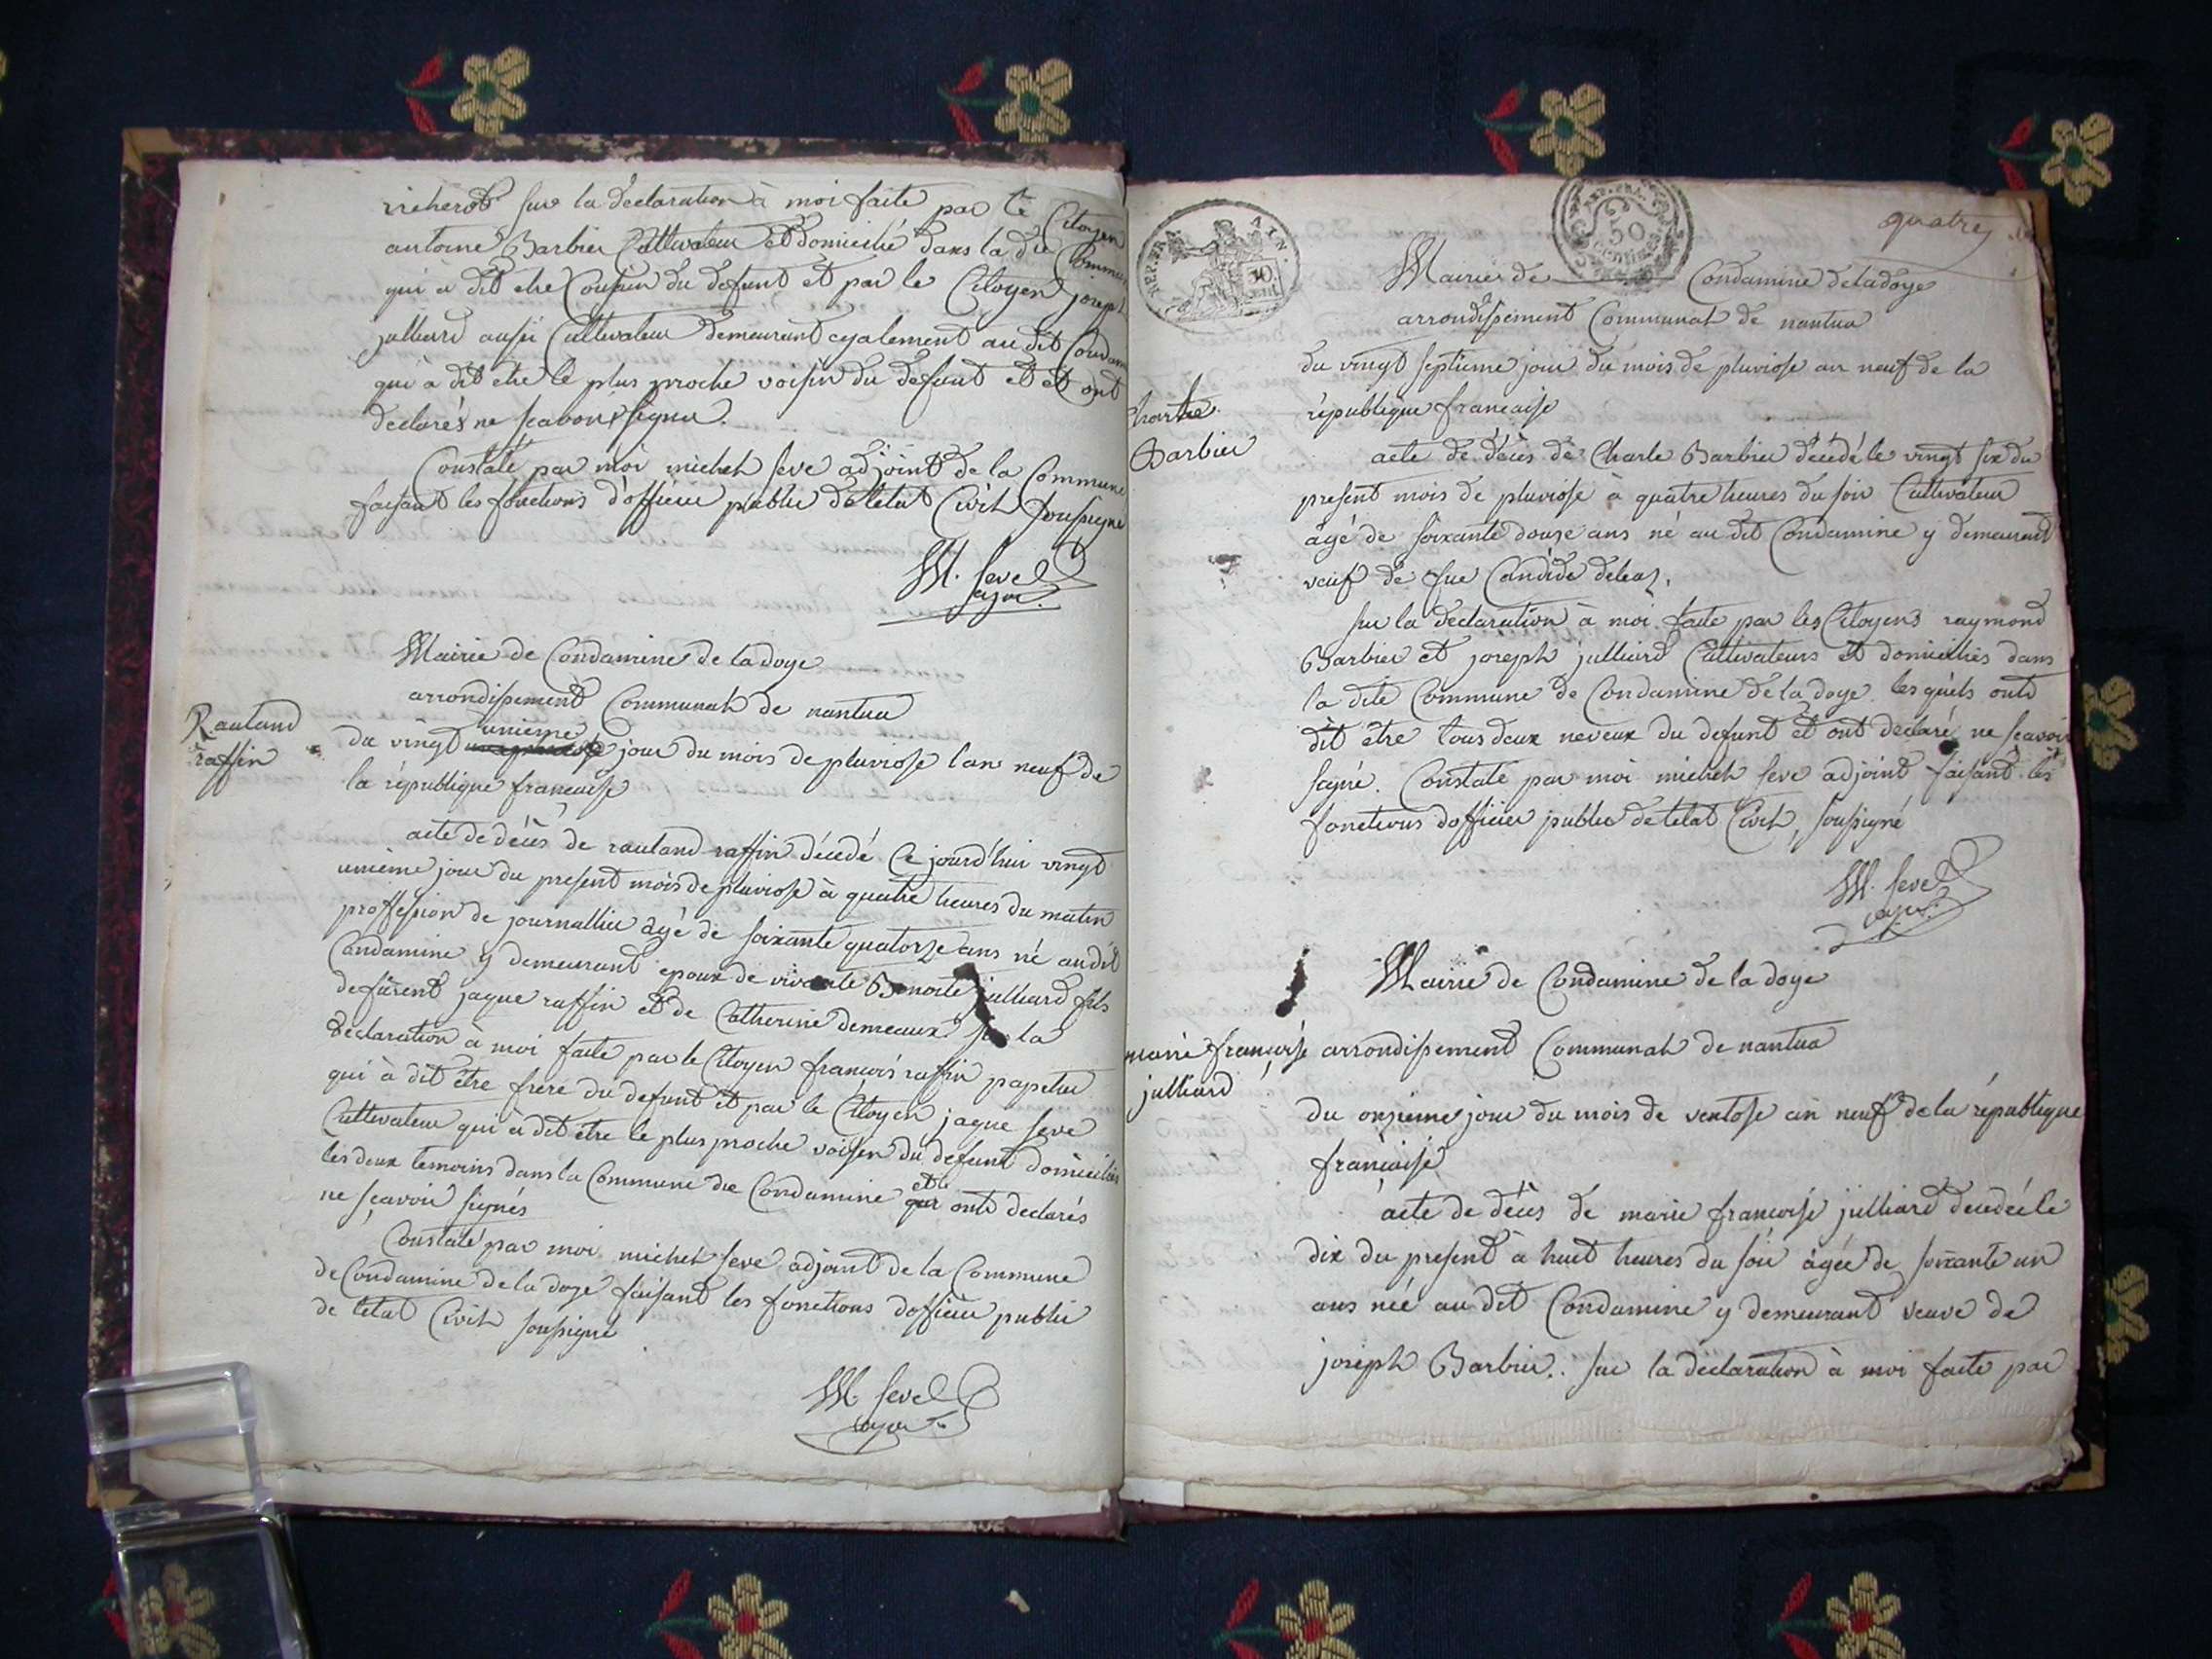 sur la déclaration à moi faite par le Citoyen
antoine Barbier Cultivateur et domicilié dans la die Commune
qui à dit etre Cousin du defunt et par le Citoyen joseph
julliard aussi Cultivateur demeurant egalement au dit Condam
qui à dit etre le plus proche voisin du defunt et et ont
declarés ne scavoir signer.
Constaté par moi michel seve adjoint de la Commune
faisant les fonctions d'officier public de letat Civil soussigné
M. seve
ajoi.
Mairie de Condamine de la doye
arrondissement Communal de nantua
Rauland
raffin
unieme
du vingt jour du mois de pluviose lan neuf de
la république francaise
acte de décès de rauland raffin décédé Ce jourd'hui vingt
unieme jour du present mois de pluviose à quatre heures du matin
profession de journallier agé de soixante quatorze ans né au dit
Condamine y demeurant epoux de vivante Benoite julliard fils
defurent jaque raffin et de Catherine demeaux sur la
declaration à moi faite par le Citoyen francois raffin papetier
qui à dit être frere du defunt et par le Citoyen jaque seve
Cultivateur qui à dit être le plus proche voisin du defunt domiciliés
les deux temoins dans la Commune die Condamine et qui ont declarés
ne scavoir signés
Constaté par moi michel seve adjoint de la Commune
de Condamine de la doye faisant les fonctions dofficier public
de letat Civil soussigné
M. seve
ajoi
quatre
50
centimes
AIN.
Mairie de Condamine de la doye
arrondissement Communal de nantua
du vingt septieme jour du mois de pluviose an neuf de la
république francaise
Charle
Barbier
acte de décès de Charle Barbier décédé le vingt six du
present mois de pluviose à quatre heures du soir Cultivateur
âgé de soixante douze ans né au dit Condamine y demeurant
veuf de fue Candide deleaz.
sur la declaration à moi faite par les Citoyens raymond
Barbier et joseph julliard Cultivateurs et domiciliés dans
la dite Commune de Condamine de la doye les quels ont
dit être tous deux neveux du defunt et ont declaré ne scavoir
signé. Constaté par moi michel seve adjoint faisant les
fonctions dofficier public de letat Civil, soussigné
M. seve
ajoi.
Mairie de Condamine de la doye
marie françoise
julliard
arrondissement Communal de nantua
du onzieme jour du mois de ventose an neuf de la république
française
acte de décès de marie francoise julliard decedée le
dix du present à huit heures du soir âgée de soixante un
ans née au dit Condamine y demeurant veuve de
joseph Barbier. sur la déclaration à moi faite par